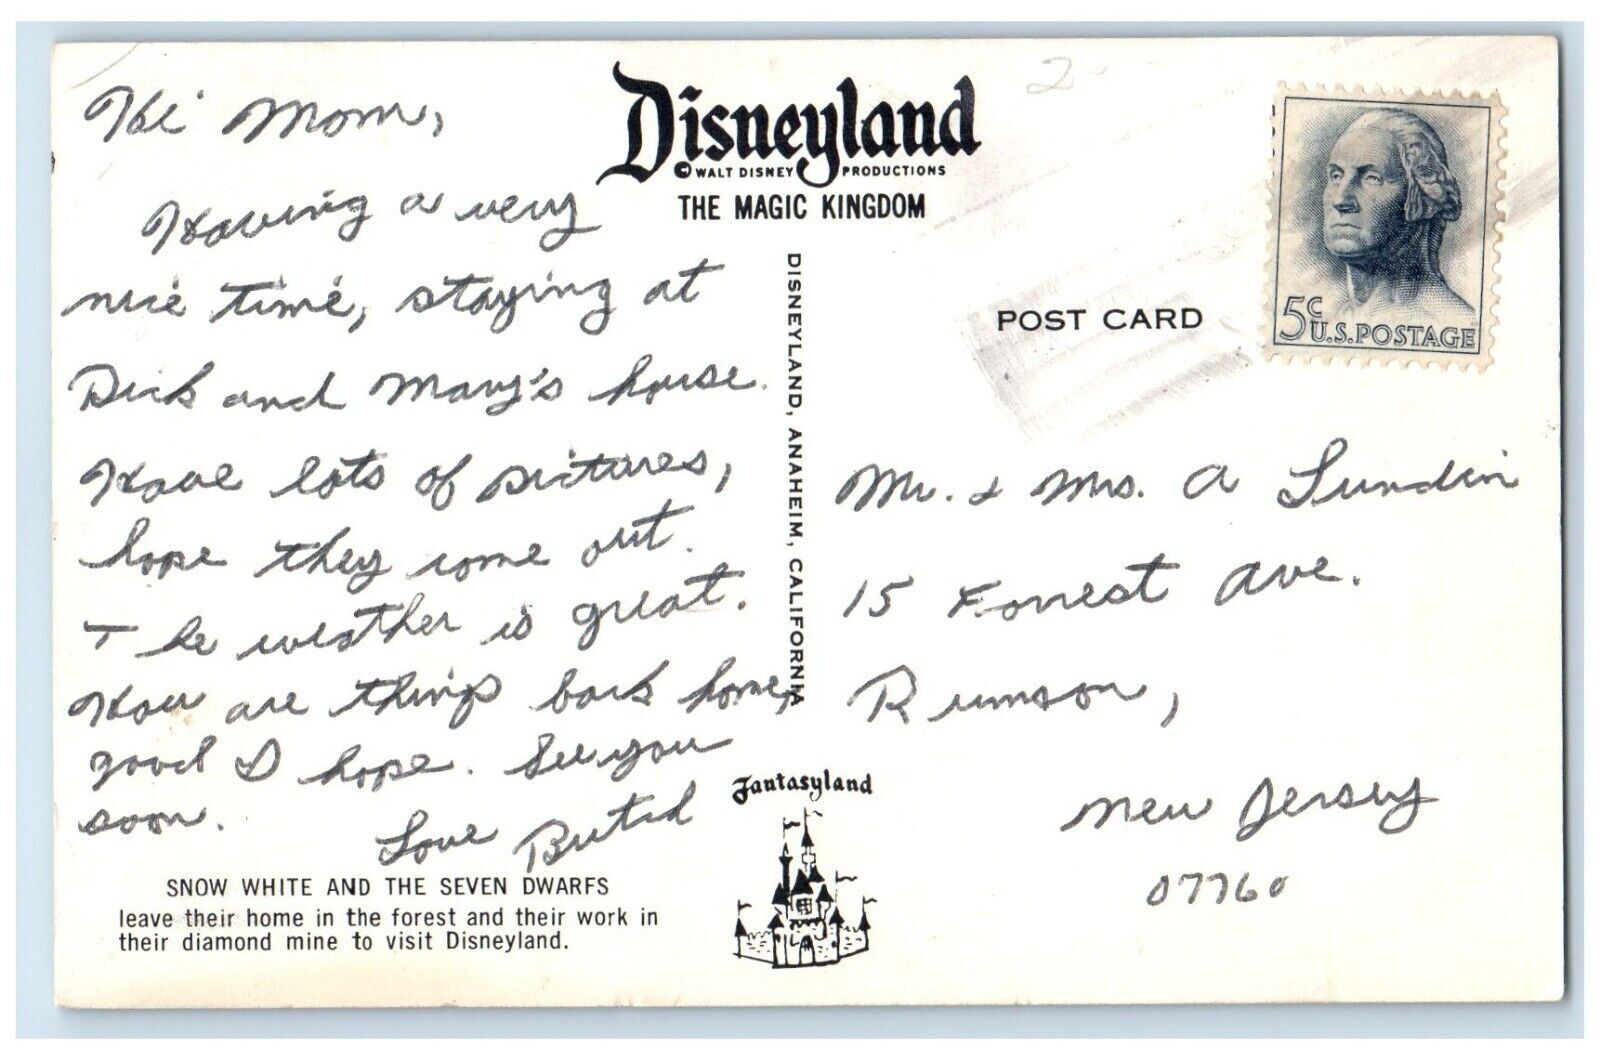 Disneyland
© WALT DISNEY PRODUCTIONS
THE MAGIC KINGDOM
Hi Mom,
Having a very
nice time, staying at
Dick and Mary's house.
Have lots of pictures,
hope they come out.
The weather is great.
How are things back home,
good I hope. See you
soon.
Love Butch
SNOW WHITE AND THE SEVEN DWARFS
leave their home in the forest and their work in
their diamond mine to visit Disneyland.
DISNEYLAND, ANAHEIM, CALIFORNIA
Fantasyland
POST CARD
5c
U.S. POSTAGE
2
Mr. & Mrs. A Lundin
15 Forrest Ave.
Rumson,
New Jersey
07760